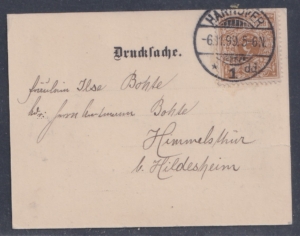 HANNOVER
1 dd.
Drucksache.
Fräulein Ilse Bohte
Herrn Bohte
Himmelsthür
b. Hildesheim